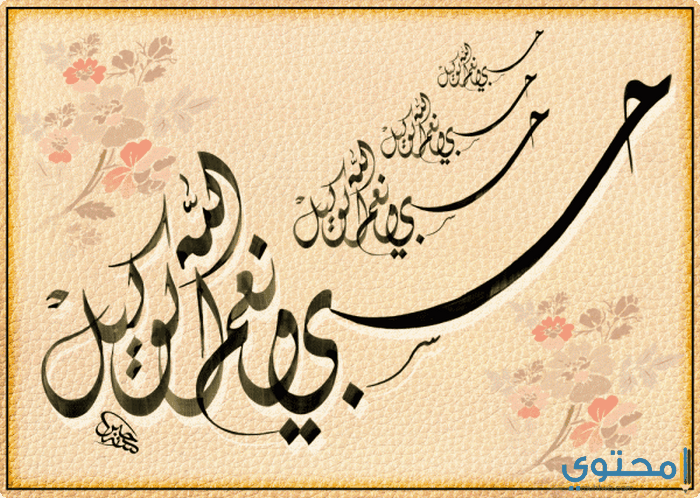 حسبي الله ونعم الوكيل
حسبي الله ونعم الوكيل
حسبي الله ونعم الوكيل
حسبي الله ونعم الوكيل
محتوي